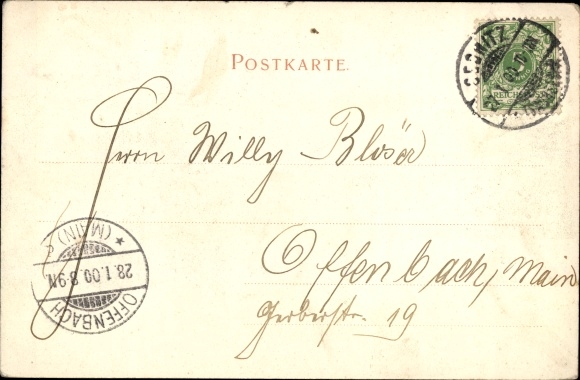 POSTKARTE.
COSWITZ
REICHSPOST
Herrn Willy Blöser
Offenbach, Main
Gerberstr. 19
OFFENBACH
28.1.00.8-9N
* (MAIN)